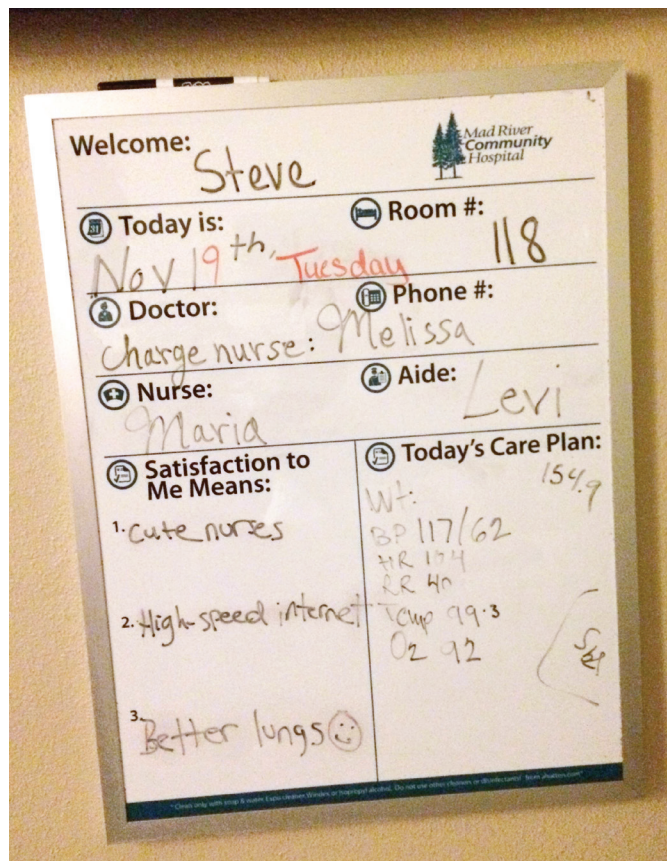 Welcome:
Steve
Mad River
Community
Hospital
Today is:
Nov 19th, Tuesday
Room #:
118
Doctor:
Phone #:
charge nurse: Melissa
Nurse:
Maria
Aide:
Levi
Satisfaction to
Me Means:
1. cute nurses
2. High-speed internet
3. Better lungs
Today's Care Plan:
154.9
Wt:
BP 117/62
HR
RR
Temp 99.3
O2 92